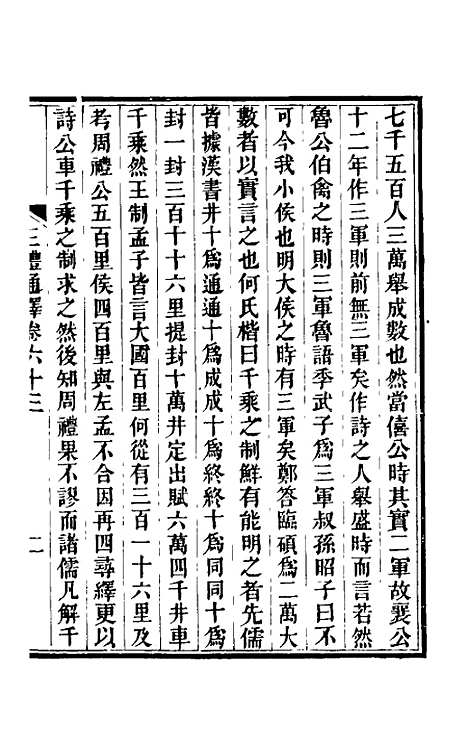 七千五百人三萬舉成數也然當僖公時其實二軍故襄公
十二年作三軍則前無三軍矣作詩之人舉盛時而言若然
魯公伯禽之時則三軍魯語季武子爲三軍叔孫昭子曰不
可今我小侯也明大侯之時有三軍矣鄭答臨碩爲二萬大
數者以實言之也何氏楷曰千乘之制鮮有能明之者先儒
皆據漢書井十爲通通十爲成成十爲終終十爲同同十爲
封一封三百十十六里提封十萬井定出賦六萬四千井車
千乘然王制孟子皆言大國百里何從有三百一十六里及
若周禮公五百里侯四百里與左孟不合因再四尋繹更以
詩公車千乘之制求之然後知周禮果不謬而諸儒凡解千
三禮通釋卷六十三